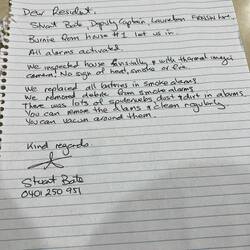 Dear Resident.
Stuart Bate Deputy Captain Lauriston
Burnie from house #1 let us in.
All alarms activated.
We inspected house visually & with thermal imaging
camera. No sign of heat, smoke or fire.
We replaced all batteries in smoke alarms
We removed debris from smoke alarms
There was lots of spiderwebs dust & dirt in alarms
You can remove the alarms & clean regularly
You can vacuum around them.
Kind regards
Stuart Bate
0401 250 951